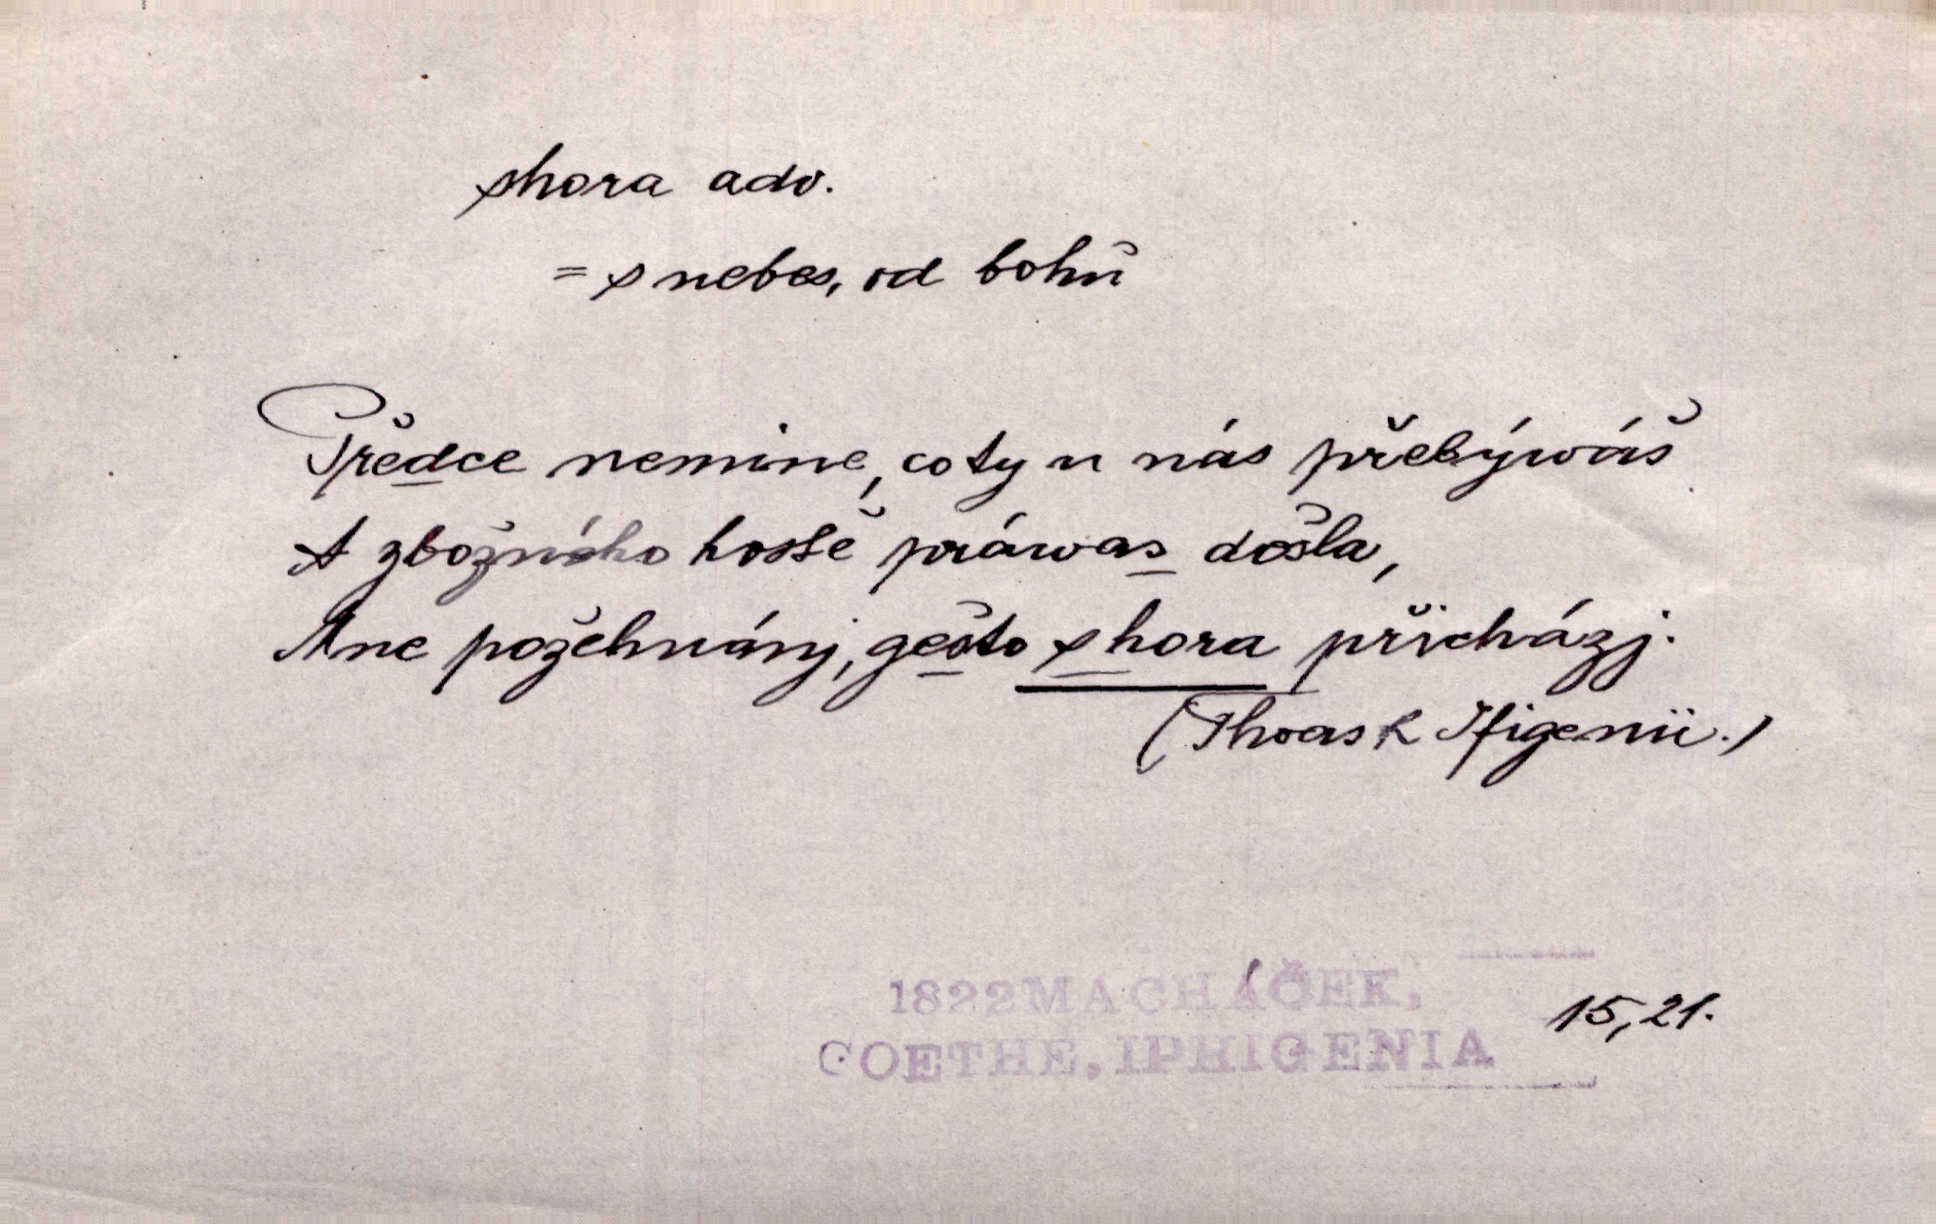 shora adv.
= s nebes, od bohů
Předce nemine, co ty u nás přebýwáš
A zbožného hostě práwas došla,
Mne požehnánj, gešto s hora přicházj.
(Thoas k Ifigenii.)
1822 MACHÁČEK,
GOETHE, IPHIGENIA
15,21.